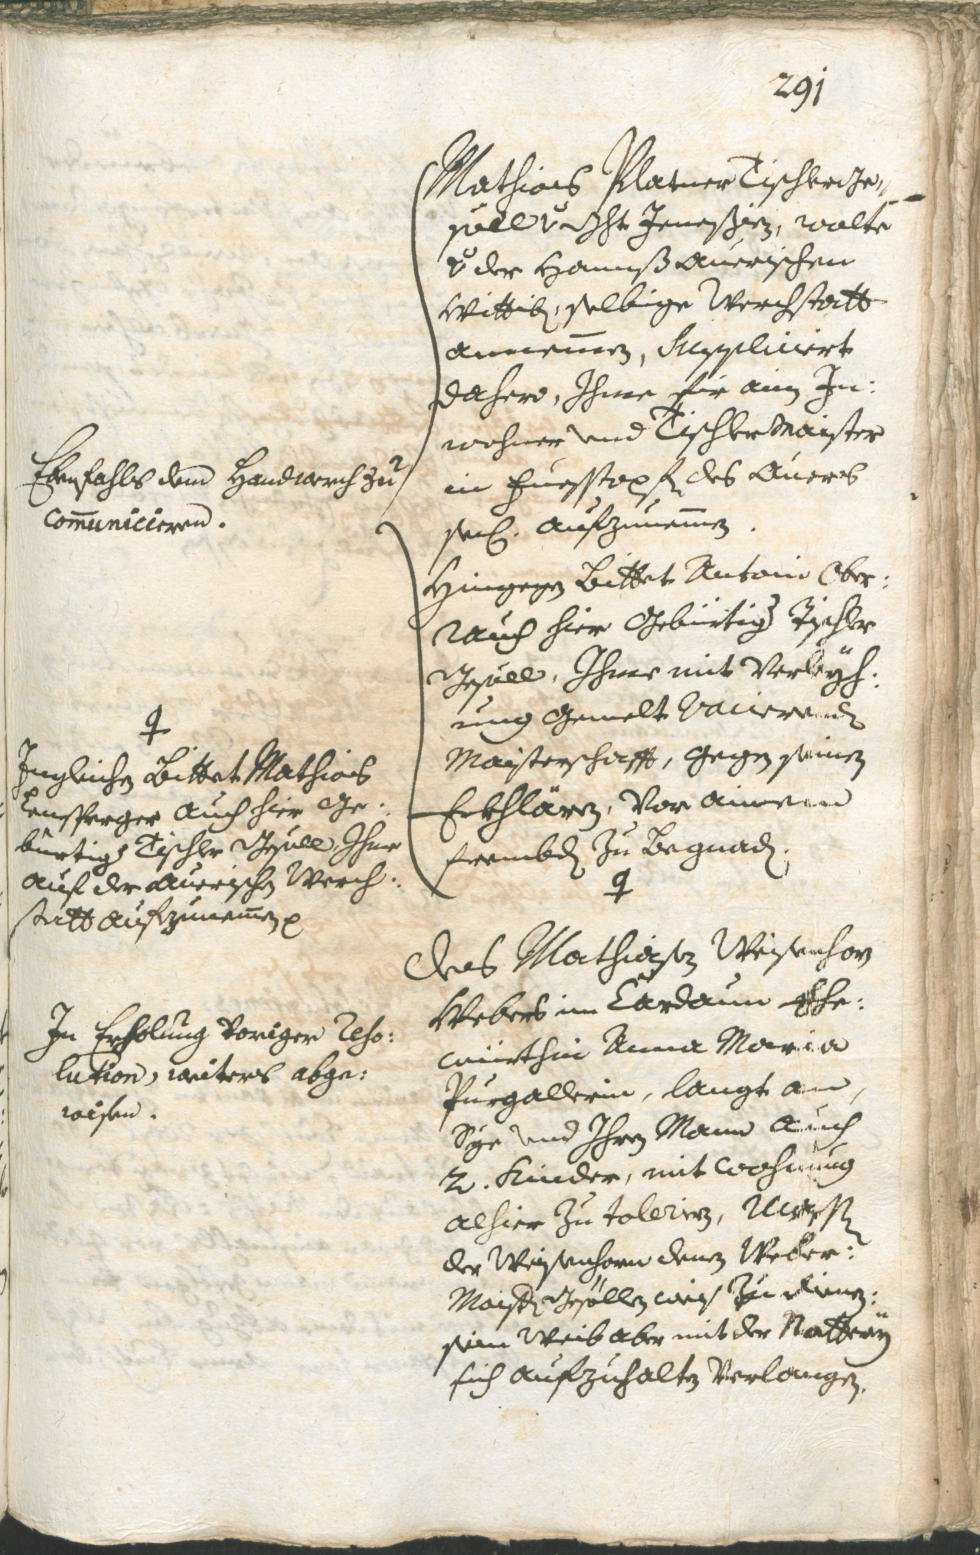 291
Mathias Platner Tischler Ge-
söll v. Jenesien, wolte
v der Hannß Auerischen
Wittib, selbige Werchstatt
annemen, Suppliciert
dahero, Ihme für ain In:
wohner und Tischler Maister
in des Auers
seel. aufzunemen.
Ebenfahls dem Handwerch zu
com̅unicieren.
Hingegen Bittet Antoni Ober:
rauch hier Gebürtig Tischler
Gesöll, Ihme mit Verleyh:
ung gemelt vacierenden
Maisterschafft, gegen seinen
Erkhlären, vor ainem
frembden zu Begnaden.
Ingleichen Bittet Mathias
auch hier Ge:
bürtig Tischler Gesöll, Ihne
auf der Auerischen Werch:
statt aufzunemen
Des Mathiasen Weisenhorn
Webers im Cardaun Ehe:
würthin Anna Maria
Purgallerin, langt an,
Sye und Ihren Mann auch
2. Kinder, mit wohnung
alhier zu tolerieren,
der Weisenhorn denen Weber:
Maistern Gesöllen weis zu dienen:
sein Weib aber mit der Natterey
sich aufzuhalten verlangen.
In Erholung voriger Reso:
lution, weiters abge:
wisen.